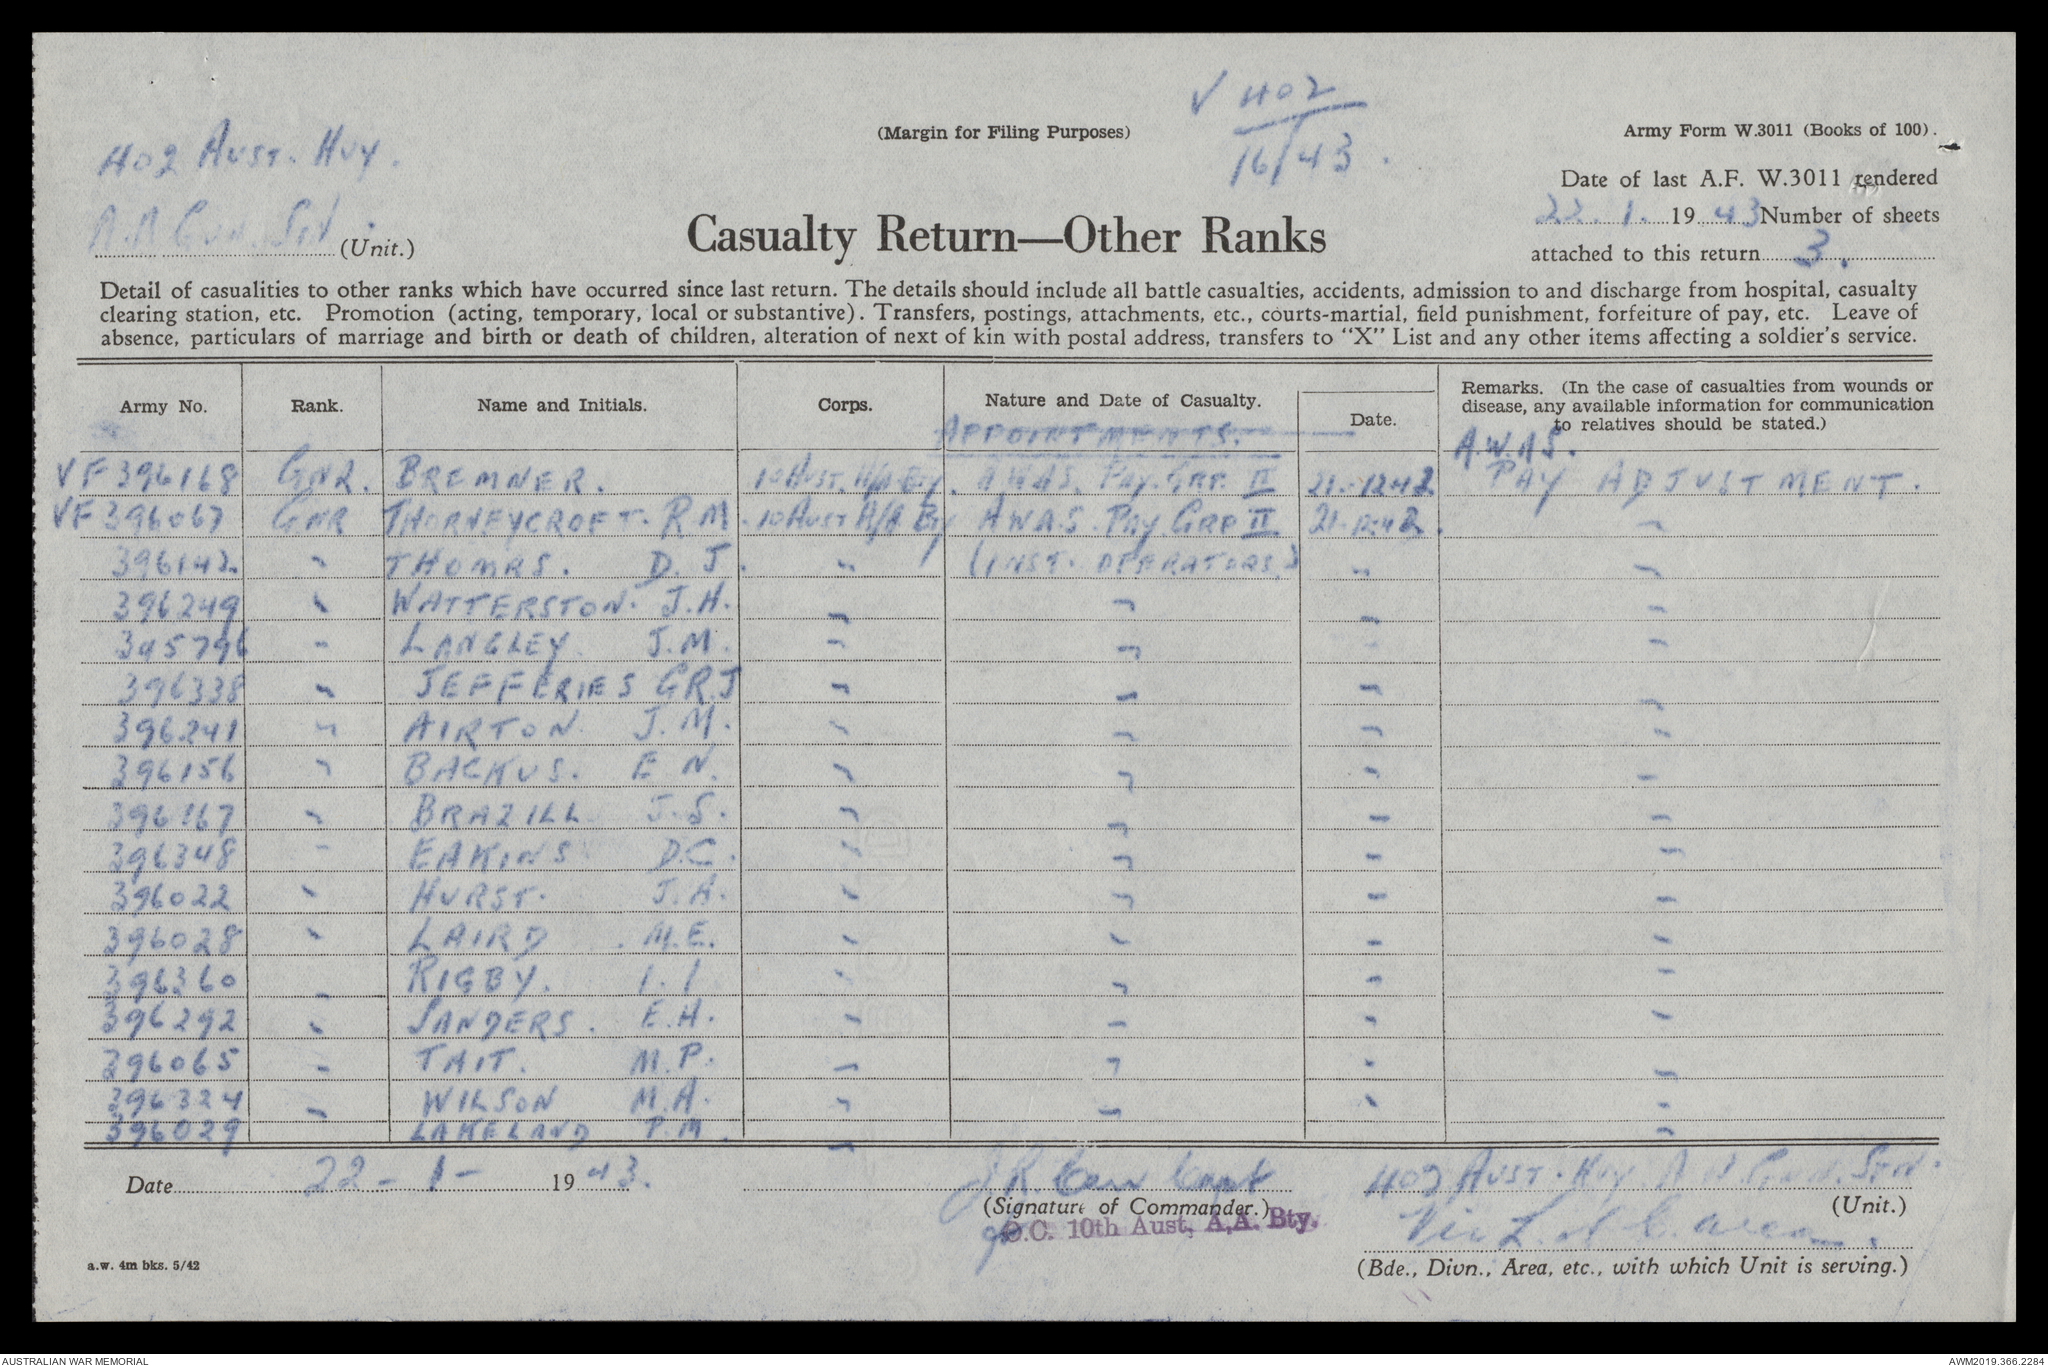 V 402
16/43.
(Margin for Filing Purposes)
Army Form W.3011 (Books of 100).
402 AUST. HVY.
A.A GUN. STN. (Unit.)
Date of last A.F. W.3011 rendered
22. 1. 19 43 Number of sheets
attached to this return 3.
Casualty Return—Other Ranks
Detail of casualities to other ranks which have occurred since last return. The details should include all battle casualties, accidents, admission to and discharge from hospital, casualty
clearing station, etc. Promotion (acting, temporary, local or substantive). Transfers, postings, attachments, etc., courts-martial, field punishment, forfeiture of pay, etc. Leave of
absence, particulars of marriage and birth or death of children, alteration of next of kin with postal address, transfers to "X" List and any other items affecting a soldier's service.
Army No. Rank. Name and Initials. Corps. Nature and Date of Casualty. Date. Remarks. (In the case of casualties from wounds or
disease, any available information for communication
to relatives should be stated.)
APPOINTMENTS. A.W.AS.
VF 396168 GNR. BREMNER. 10 AUST. H/A Bty. A.W.A.S. PAY. GRP. II 21.-12.42 PAY ADJUSTMENT.
VF 396067 GNR THORNEYCROFT. R.M. 10 AUST A/A Bty A.W.A.S. PAY. GRP II 21.12.42. "
396142. " THOMAS. D. J. " (INST. OPERATORS.) " "
396249 " WATTERSTON. J.H. " " " "
395796 " LANGLEY. J.M. " " " "
396338 " JEFFERIES G.R.J " " " "
396241 " AIRTON J.M. " " " "
396156 " BACKUS. E N. " " " "
396167 " BRAZILL J.S. " " " "
396348 " EAKINS D.C. " " " "
396022 " HURST. J.A. " " " "
396028 " LAIRD. M.E. " " " "
396360 " RIGBY. I. I " " " "
396292 " SANDERS. E.H. " " " "
396065 " TAIT. M.P. " " " "
396324 " WILSON M.A. " " " "
396029 LAKELAND P.M. " "
Date 22 - 1 - 19 43. J.R. Capt 402 AUST. HVY. A A GUN. STN.
(Signature of Commander.) (Unit.)
O.C. 10th Aust, A,A. Bty. Vic L. of C. Area.
a.w. 4m bks. 5/42
(Bde., Divn., Area, etc., with which Unit is serving.)
AUSTRALIAN WAR MEMORIAL
AWM2019.366.2284